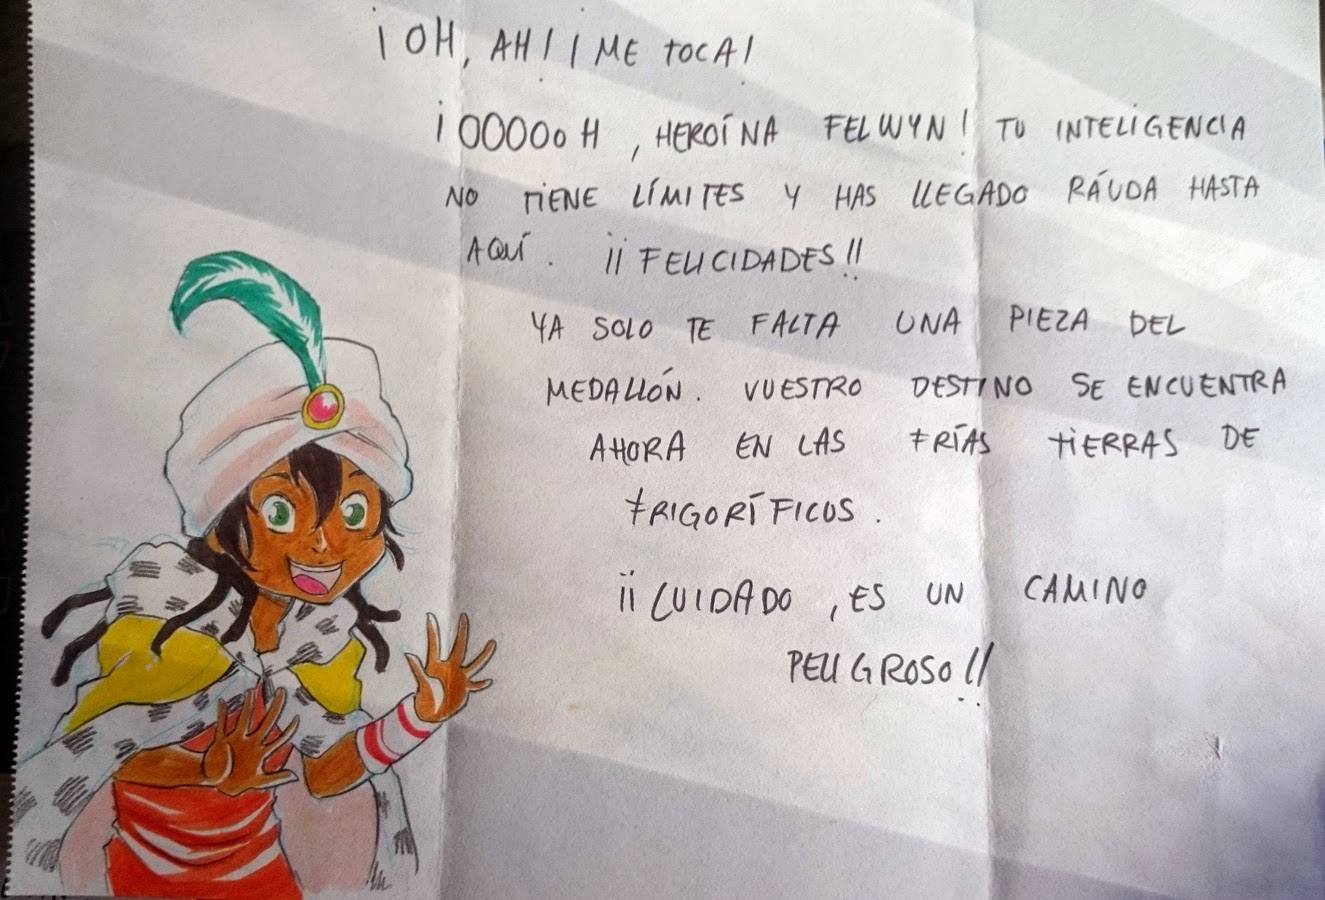 ¡OH, AH! ¡ME TOCA!
¡OOOOOH, HEROÍNA FELWYN! TU INTELIGENCIA
NO TIENE LÍMITES Y HAS LLEGADO RÁUDA HASTA
AQUÍ. ¡¡FELICIDADES!!
YA SOLO TE FALTA UNA PIEZA DEL
MEDALLÓN. VUESTRO DESTINO SE ENCUENTRA
AHORA EN LAS FRÍAS TIERRAS DE
FRIGORÍFICUS.
¡¡CUIDADO, ES UN CAMINO
PELIGROSO!!